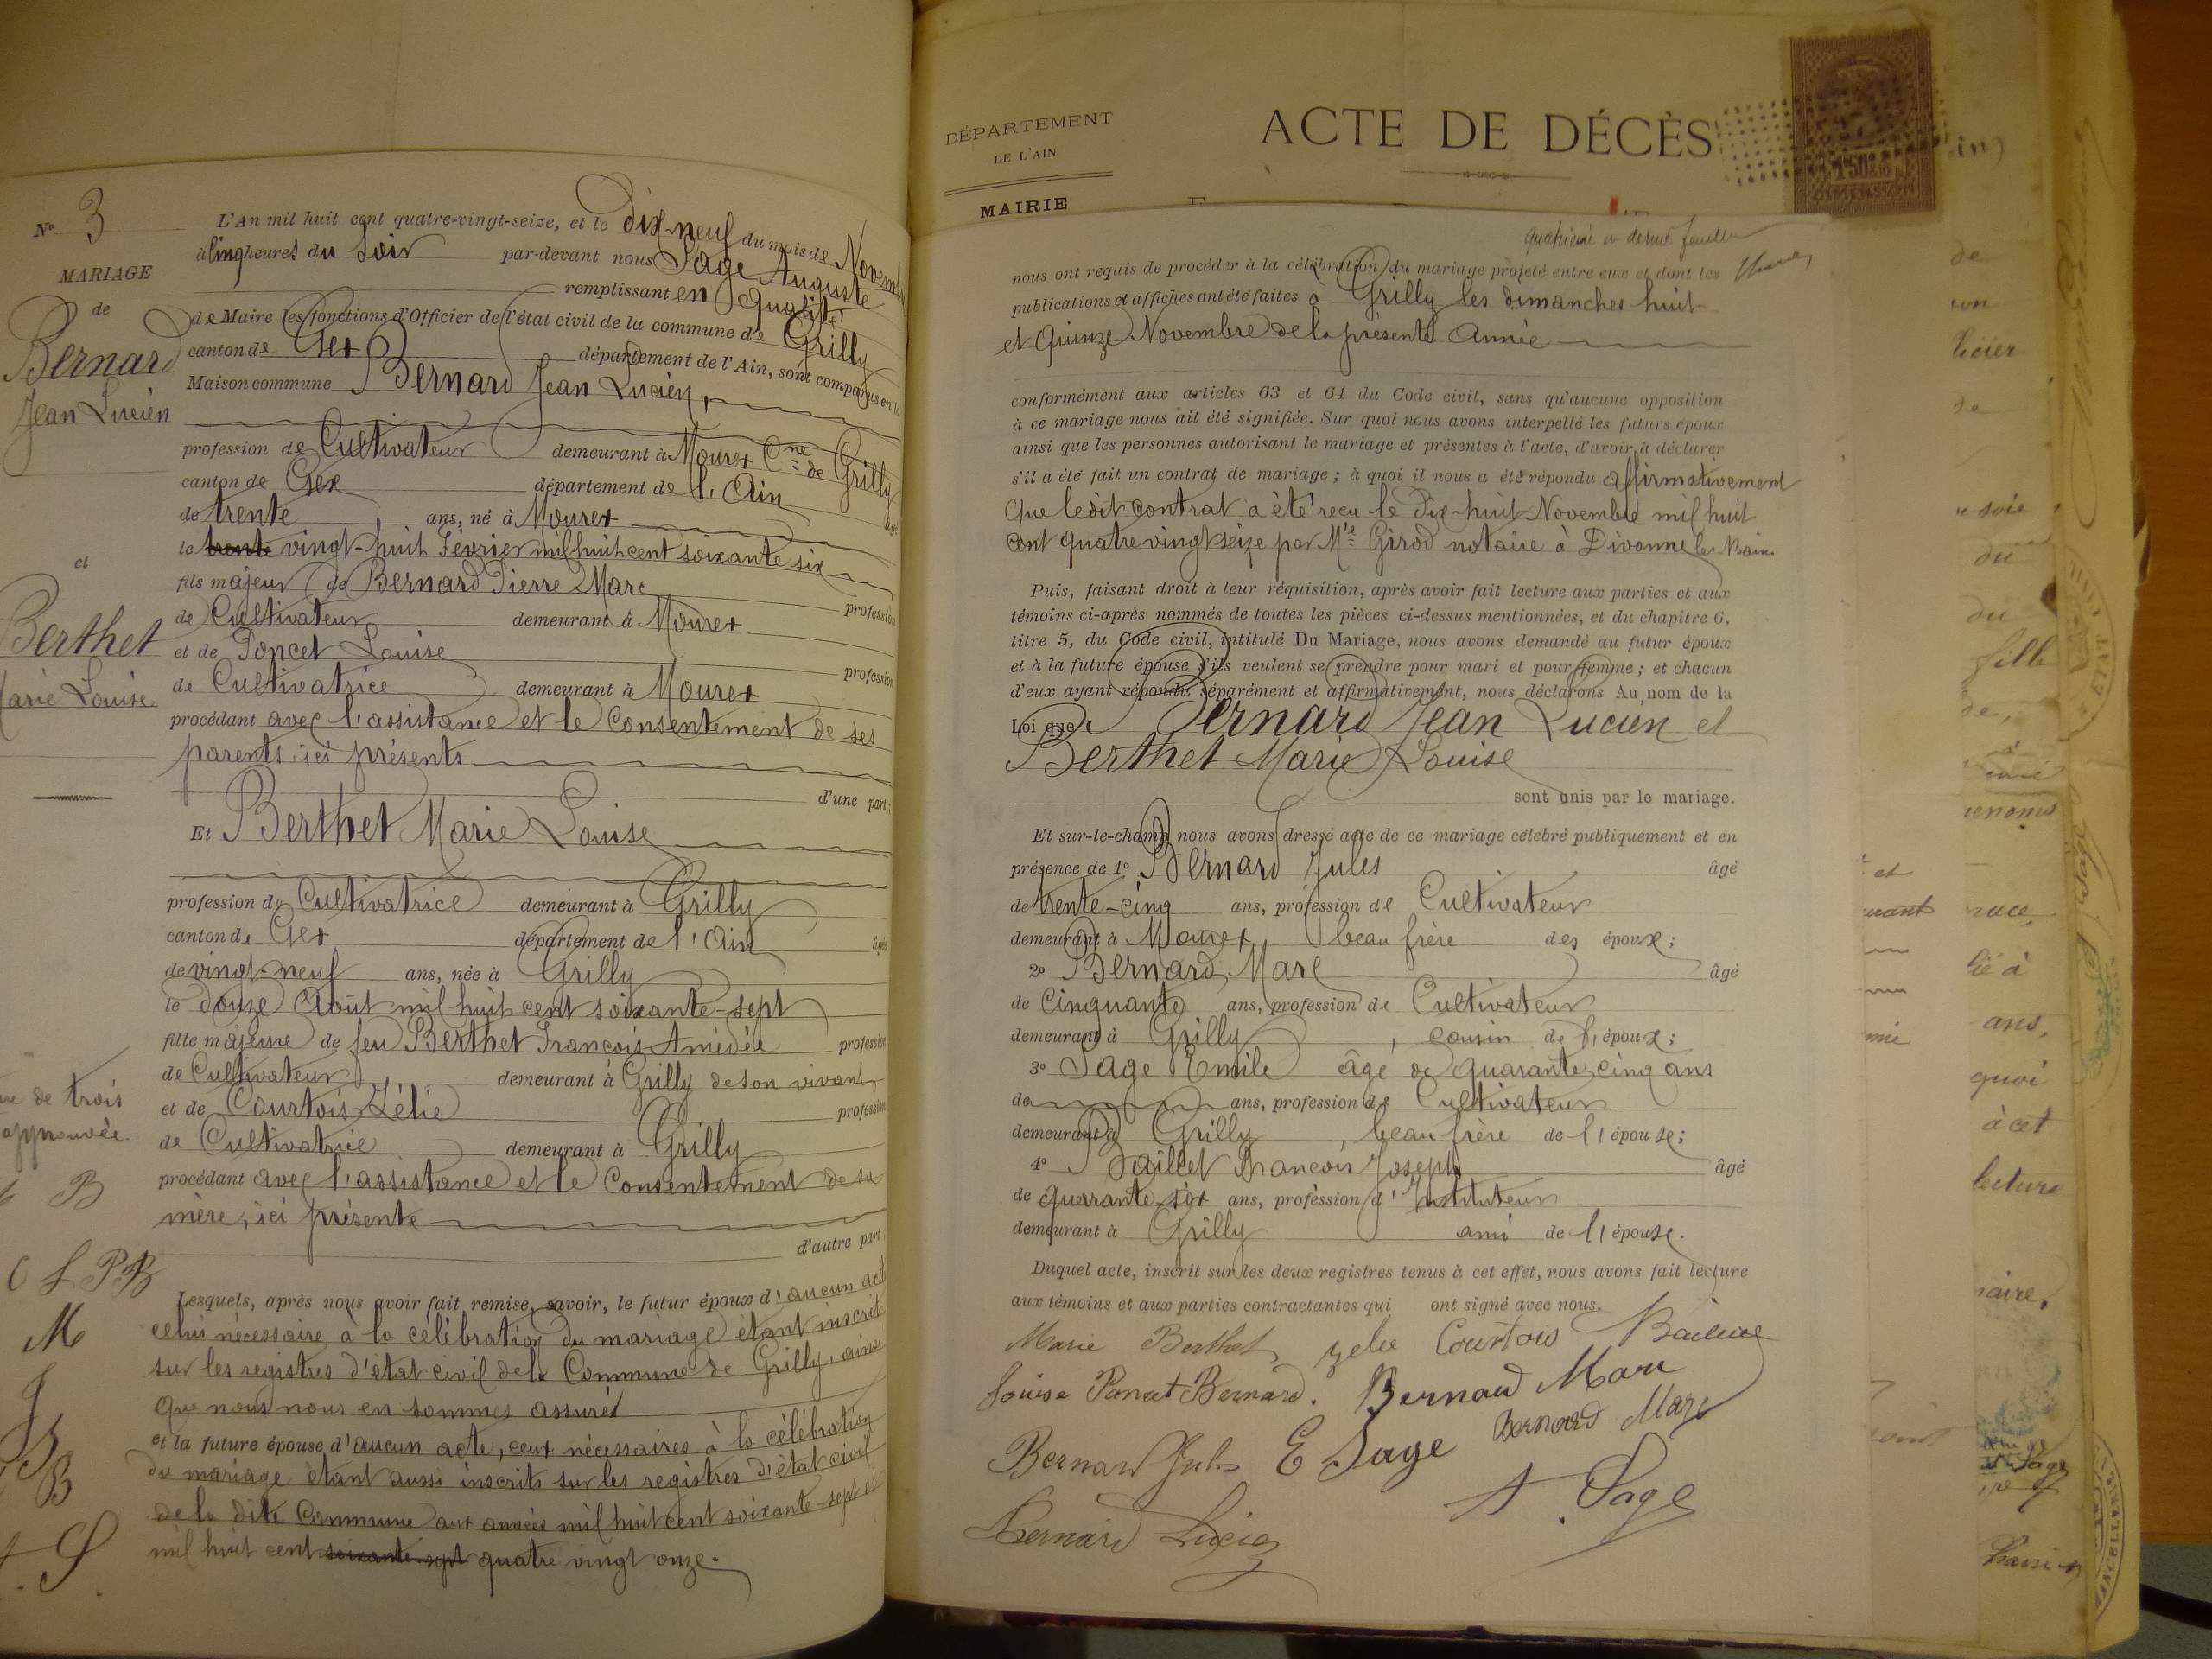 N° 3
MARIAGE
de
Bernard
Jean Lucien
et
Berthet
Marie Louise
de trois
approuvée.
B
L P B
M
J
B
B
S.
L'An mil huit cent quatre-vingt-seize, et le dix-neuf du mois de Novembre
à cinq heures du Soir par-devant nous Sage Auguste
remplissant en qualité
de Maire les fonctions d'Officier de l'état civil de la commune de Grilly
canton de Gex département de l'Ain, sont comparus en la
Maison commune Bernard Jean Lucien,
profession de Cultivateur demeurant à Mourex Cne de Grilly
canton de Gex département de l'Ain âgé
de trente ans, né à Mourex
le trente vingt-huit Février mil huit cent soixante six
fils majeur de Bernard Pierre Marc profession
de Cultivateur demeurant à Mourex
et de Poncet Louise profession
de Cultivatrice demeurant à Mourex
procédant avec l'assistance et le Consentement de ses
parents ici présents
d'une part;
Et Berthet Marie Louise
profession de Cultivatrice demeurant à Grilly
canton de Gex département de l'Ain âgée
de vingt-neuf ans, née à Grilly
le douze Août mil huit cent soixante-sept
fille majeure de feu Berthet François Amédée profession
de Cultivateur, demeurant à Grilly de son vivant
et de Courtois Zélie profession
de Cultivatrice demeurant à Grilly
procédant avec l'assistance et le Consentement de sa
mère, ici présente
d'autre part.
Lesquels, après nous avoir fait remise, savoir, le futur époux d'aucun acte
celui nécessaire à la célébration du mariage étant inscrit
sur les registres d'état civil de la Commune de Grilly, ainsi
que nous nous en sommes assurés
et la future épouse d'aucun acte, ceux nécessaires à la célébration
du mariage étant aussi inscrits sur les registres d'état civil
de la dite Commune aux années mil huit cent soixante-sept et
mil huit cent soixante-sept quatre vingt onze.
DÉPARTEMENT
DE L'AIN
MAIRIE
ACTE DE DÉCÈS
DIMENSION
quatrième et dernier feuillet
nous ont requis de procéder à la célébration du mariage projeté entre eux et dont les
publications et affiches ont été faites à Grilly les dimanches huit
et quinze Novembre de la présente Année
conformément aux articles 63 et 64 du Code civil, sans qu'aucune opposition
à ce mariage nous ait été signifiée. Sur quoi nous avons interpellé les futurs époux
ainsi que les personnes autorisant le mariage et présentes à l'acte, d'avoir à déclarer
s'il a été fait un contrat de mariage; à quoi il nous a été répondu affirmativement
que ledit contrat a été reçu le Dix-huit Novembre mil huit
cent quatre vingt seize par Me Girod notaire à Divonne les Bains
Puis, faisant droit à leur réquisition, après avoir fait lecture aux parties et aux
témoins ci-après nommés de toutes les pièces ci-dessus mentionnées, et du chapitre 6,
titre 5, du Code civil, intitulé Du Mariage, nous avons demandé au futur époux
et à la future épouse s'ils veulent se prendre pour mari et pour femme; et chacun
d'eux ayant répondu séparément et affirmativement, nous déclarons Au nom de la
Loi que Bernard Jean Lucien et
Berthet Marie Louise
sont unis par le mariage.
Et sur-le-champ nous avons dressé acte de ce mariage célébré publiquement et en
présence de 1° Bernard Jules âgé
de trente-cinq ans, profession de Cultivateur
demeurant à Mourex beau frère des époux;
2° Bernard Marc âgé
de Cinquante ans, profession de Cultivateur
demeurant à Grilly, cousin de l'époux;
3° Sage Emile âgé de quarante cinq ans
de ans, profession de Cultivateur
demeurant à Grilly, beau frère de l'épouse;
4° Baillet François Joseph âgé
de quarante six ans, profession d'Instituteur
demeurant à Grilly ami de l'épouse.
Duquel acte, inscrit sur les deux registres tenus à cet effet, nous avons fait lecture
aux témoins et aux parties contractantes qui ont signé avec nous.
Marie Berthet Zelie Courtois
Louise Poncet Bernard. Bernard Marc
Bernard Jules E Sage Bernard Marc
A. Sage
Bernard Lucien
de
huissier
de
soie
du
du
fille
de,
prenoms
et
ans,
quoi
à cet
lecture
Maire,
Sage